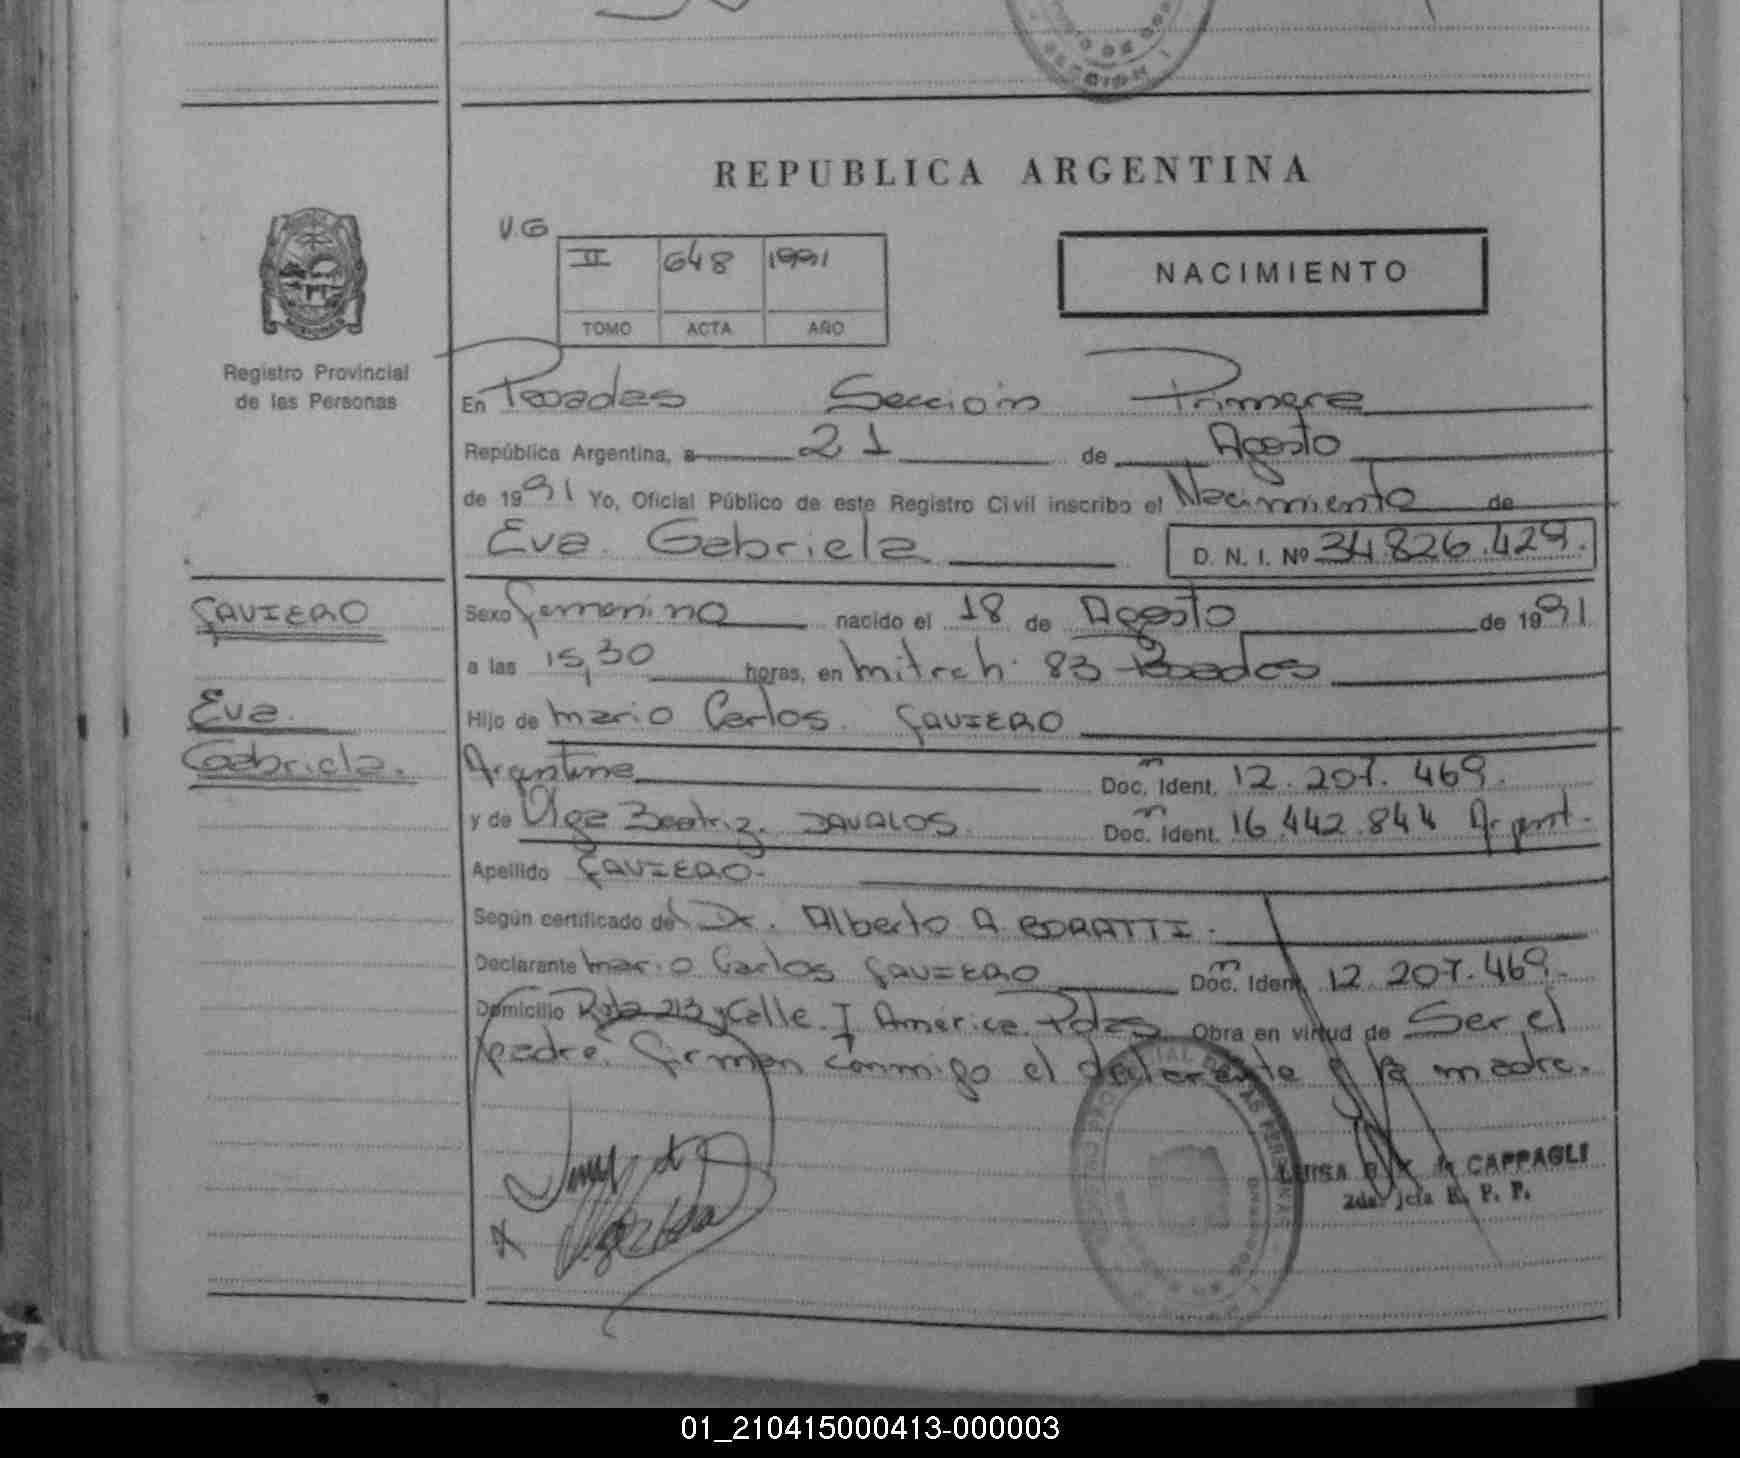 SECCION I
REPUBLICA ARGENTINA
V.G
II 648 1991
TOMO ACTA AÑO
NACIMIENTO
Registro Provincial
de las Personas
En Posadas Sección Primera
República Argentina, a 21 de Agosto
de 1991 Yo, Oficial Público de este Registro Civil inscribo el Nacimiento de
Eva Gabriela D. N. I. Nº 34.826.429.
GAVIERO
Eva
Gabriela.
Sexo femenino nacido el 18 de Agosto de 1991
a las 15,30 horas, en Mitre 83 Posadas
Hijo de Mario Carlos GAVIERO
Argentina Doc. Ident. 12.207.469.
y de Olga Beatriz DAVALOS. Doc. Ident. 16.442.844 Argent.
Apellido GAVIERO-
Según certificado del Dr. Alberto A. BORATTI.
Declarante Mario Carlos GAVIERO Doc. Ident. 12.207.469.
Domicilio Ruta 213 y Calle I America Pdas Obra en virtud de Ser el
padre. firman conmigo el declarante y la madre.
LUISA CAPPAGLI
2da jefa R. P. P.
01_210415000413-000003